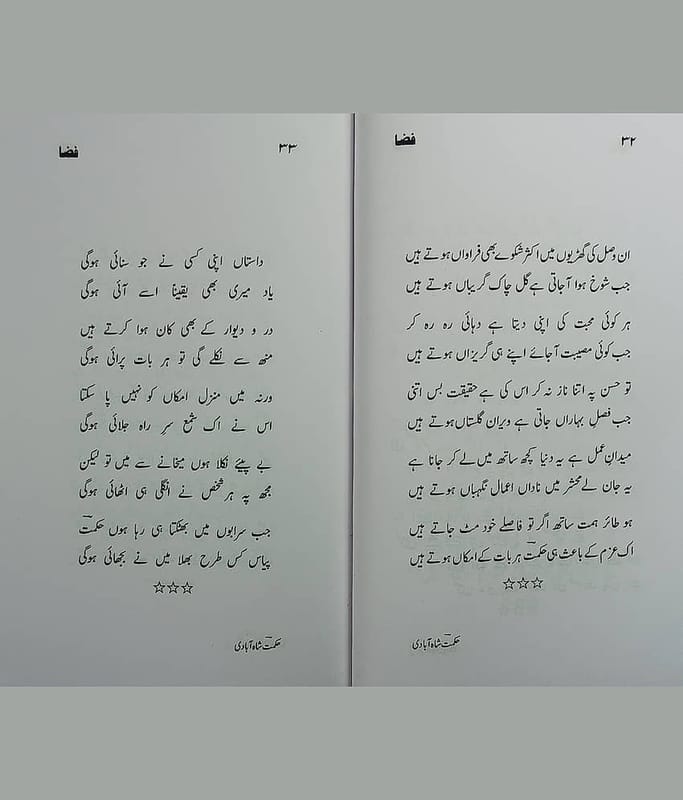 ۳۲
فضا
ان وصل کی گھڑیوں میں اکثر شکوے بھی فراواں ہوتے ہیں
جب شوخ ہوا آجاتی ہے گل چاک گریباں ہوتے ہیں
ہر کوئی محبت کی اپنی دیتا ہے دہائی رہ رہ کر
جب کوئی مصیبت آجائے اپنے ہی گریزاں ہوتے ہیں
تو حسن پہ اتنا ناز نہ کر اس کی ہے حقیقت بس اتنی
جب فصلِ بہاراں جاتی ہے ویران گلستاں ہوتے ہیں
میدانِ عمل ہے یہ دنیا کچھ ساتھ میں لے کر جانا ہے
یہ جان لے محشر میں ناداں اعمال نگہباں ہوتے ہیں
ہو طائر ہمت ساتھ اگر تو فاصلے خود مٹ جاتے ہیں
اک عزم کے باعث ہی حکمتؔ ہر بات کے امکاں ہوتے ہیں
☆☆☆
حکمتؔ شاہ آبادی
۳۳
فضا
داستاں اپنی کسی نے جو سنائی ہوگی
یاد میری بھی یقیناً اسے آئی ہوگی
در و دیوار کے بھی کان ہوا کرتے ہیں
منھ سے نکلے گی تو ہر بات پرائی ہوگی
ورنہ میں منزل امکاں کو نہیں پا سکتا
اس نے اک شمع سرِ راہ جلائی ہوگی
بے پیئے نکلا ہوں میخانے سے میں تو لیکن
مجھ پہ ہر شخص نے انگلی ہی اٹھائی ہوگی
جب سرابوں میں بھٹکتا ہی رہا ہوں حکمتؔ
پیاس کس طرح بھلا میں نے بجھائی ہوگی
☆☆☆
حکمتؔ شاہ آبادی